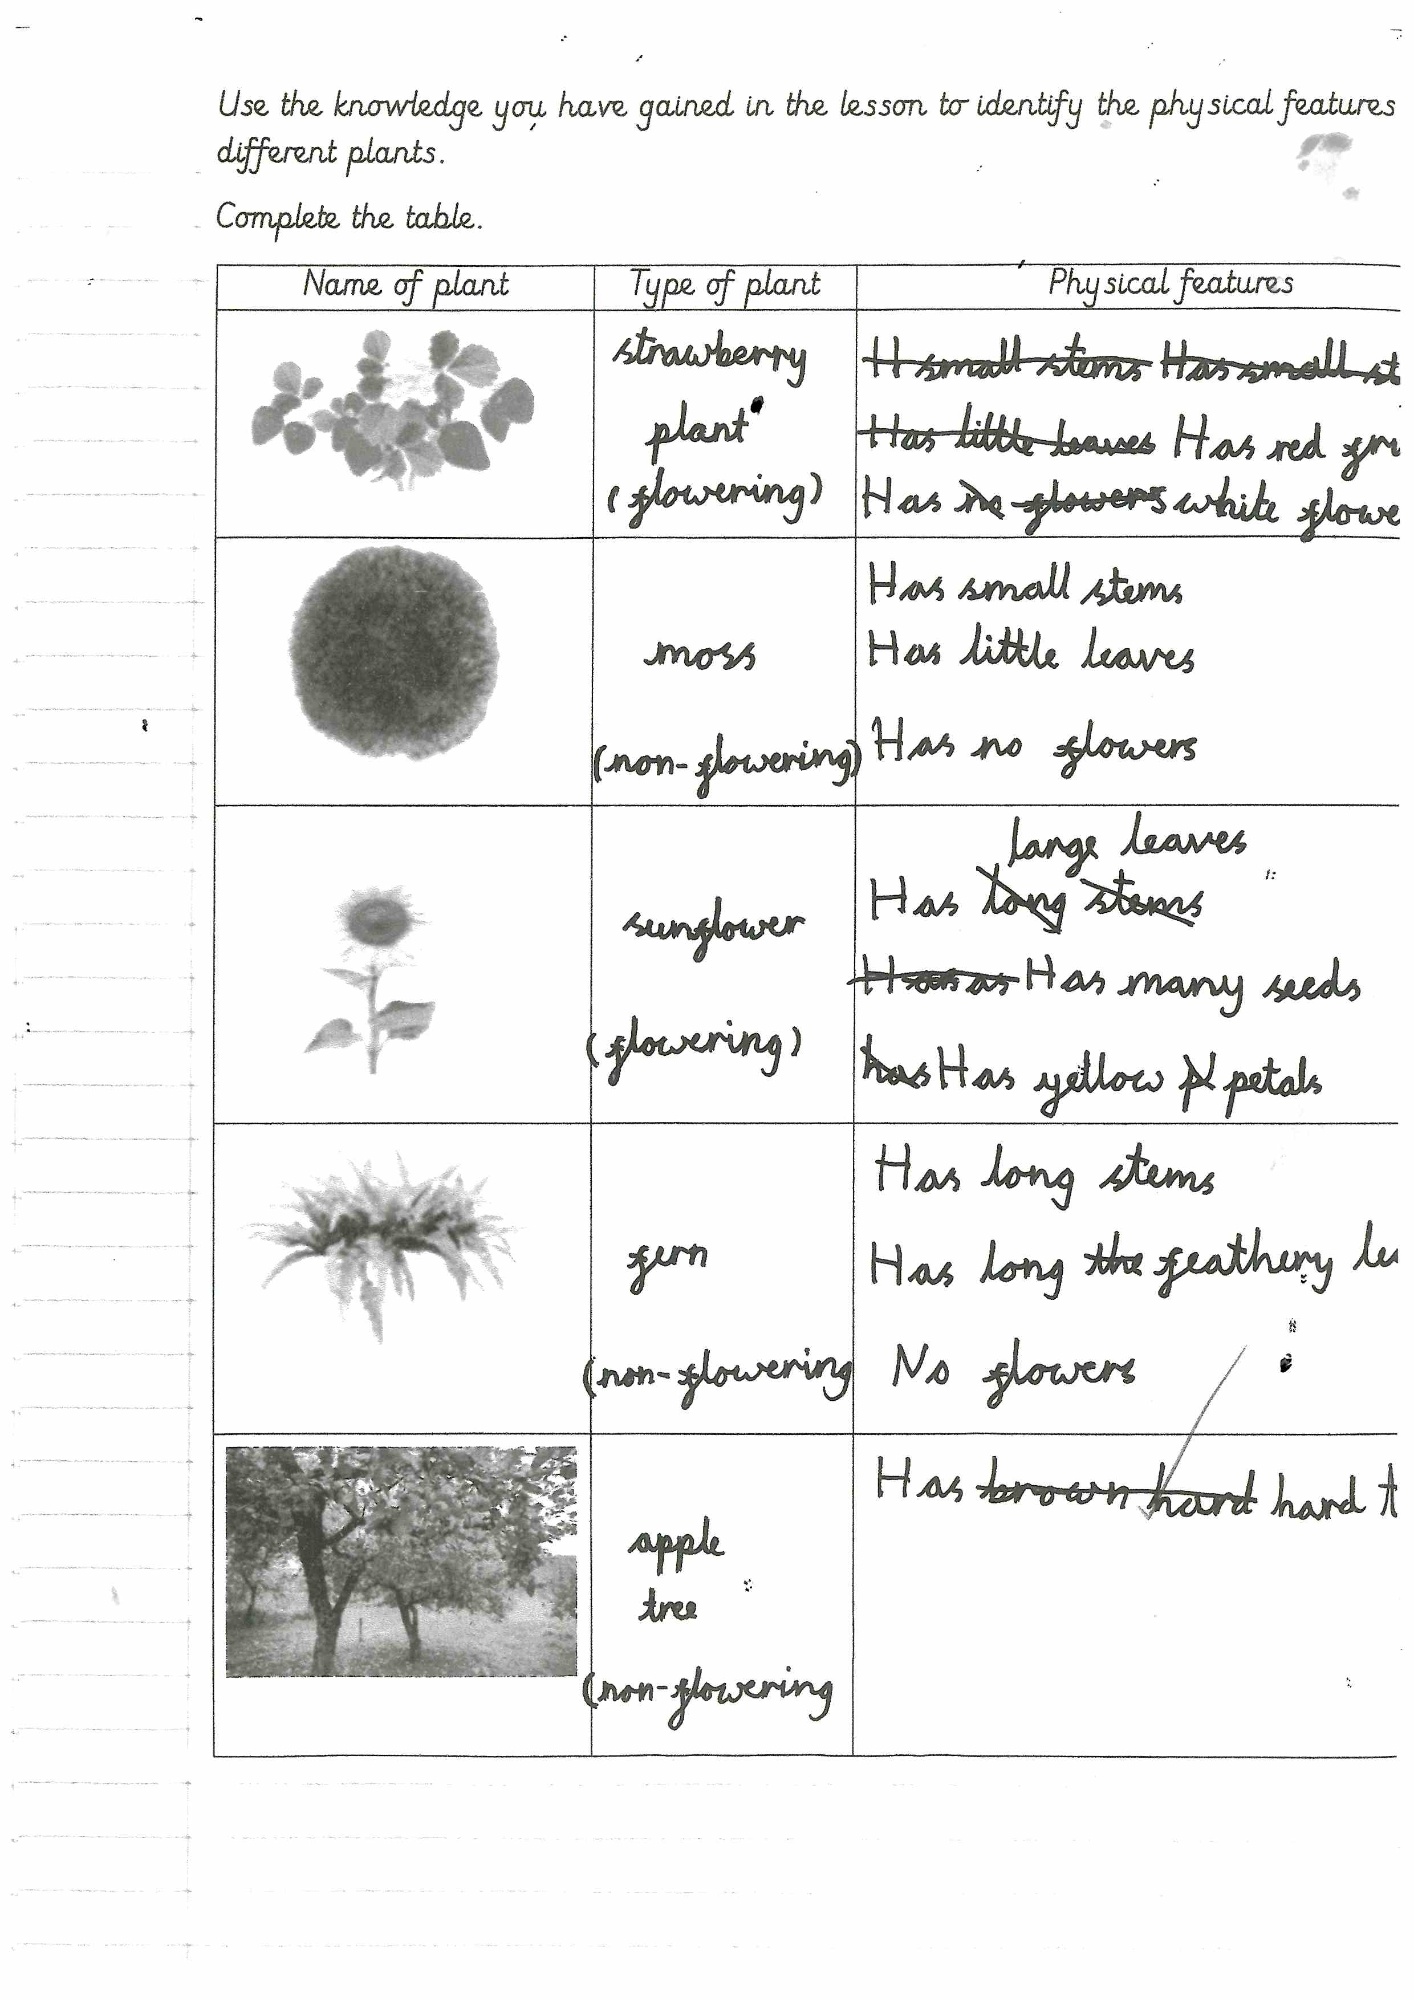 Use the knowledge you have gained in the lesson to identify the physical features
different plants.
Complete the table.
Name of plant Type of plant Physical features
strawberry
plant
(flowering)
H small stems Has small st
Has little leaves Has red
Has no flowers white flowe
moss
(non-flowering)
Has small stems
Has little leaves
Has no flowers
sunflower
(flowering)
large leaves
Has long stems
Has many seeds
has Has yellow petals
fern
(non-flowering
Has long stems
Has long the feathery
No flowers
apple
tree
(non-flowering
Has brown hard hard